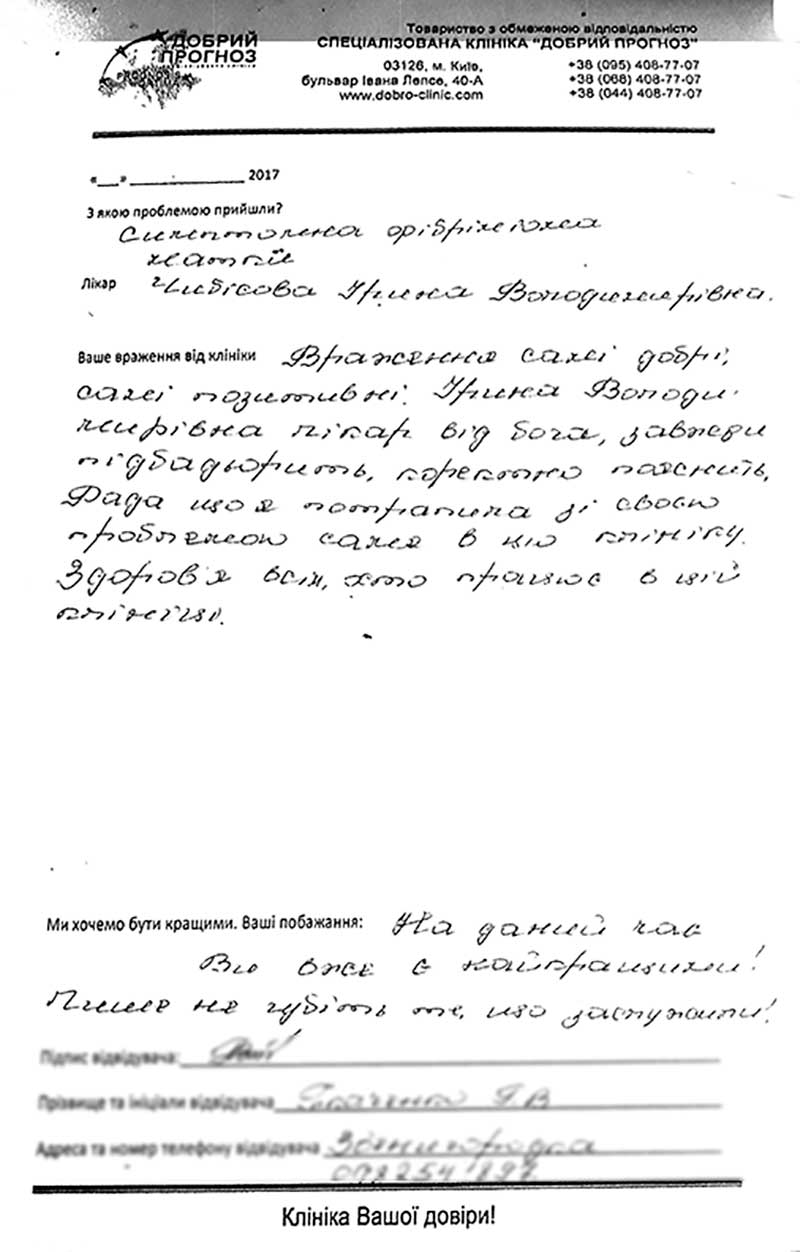 ДОБРИЙ
ПРОГНОЗ
Товариство з обмеженою відповідальністю
СПЕЦІАЛІЗОВАНА КЛІНІКА "ДОБРИЙ ПРОГНОЗ"
03126, м. Київ,
бульвар Івана Лепсе, 40-А
www.dobro-clinic.com
+38 (095) 408-77-07
+38 (068) 408-77-07
+38 (044) 408-77-07
«__» ______________ 2017
З якою проблемою прийшли?
Симптомна фібріміома
матки
Лікар Чибісова Ірина Володимирівна.
Ваше враження від клініки Враження самі добрі,
самі позитивні. Ірина Володи-
мирівна лікар від бога, завжди
підбадьорить, коректно пояснить,
Рада що я потрапила зі своєю
проблемою саме в цю клініку.
Здоров'я всім, хто працює в цій
клініці.
Ми хочемо бути кращими. Ваші побажання: На даний час
Ви вже є найкращими!
Лише не губіть те, що заслужили!
Підпис відвідувача:
Прізвище та ініціали відвідувача
Адреса та номер телефону відвідувача
Клініка Вашої довіри!